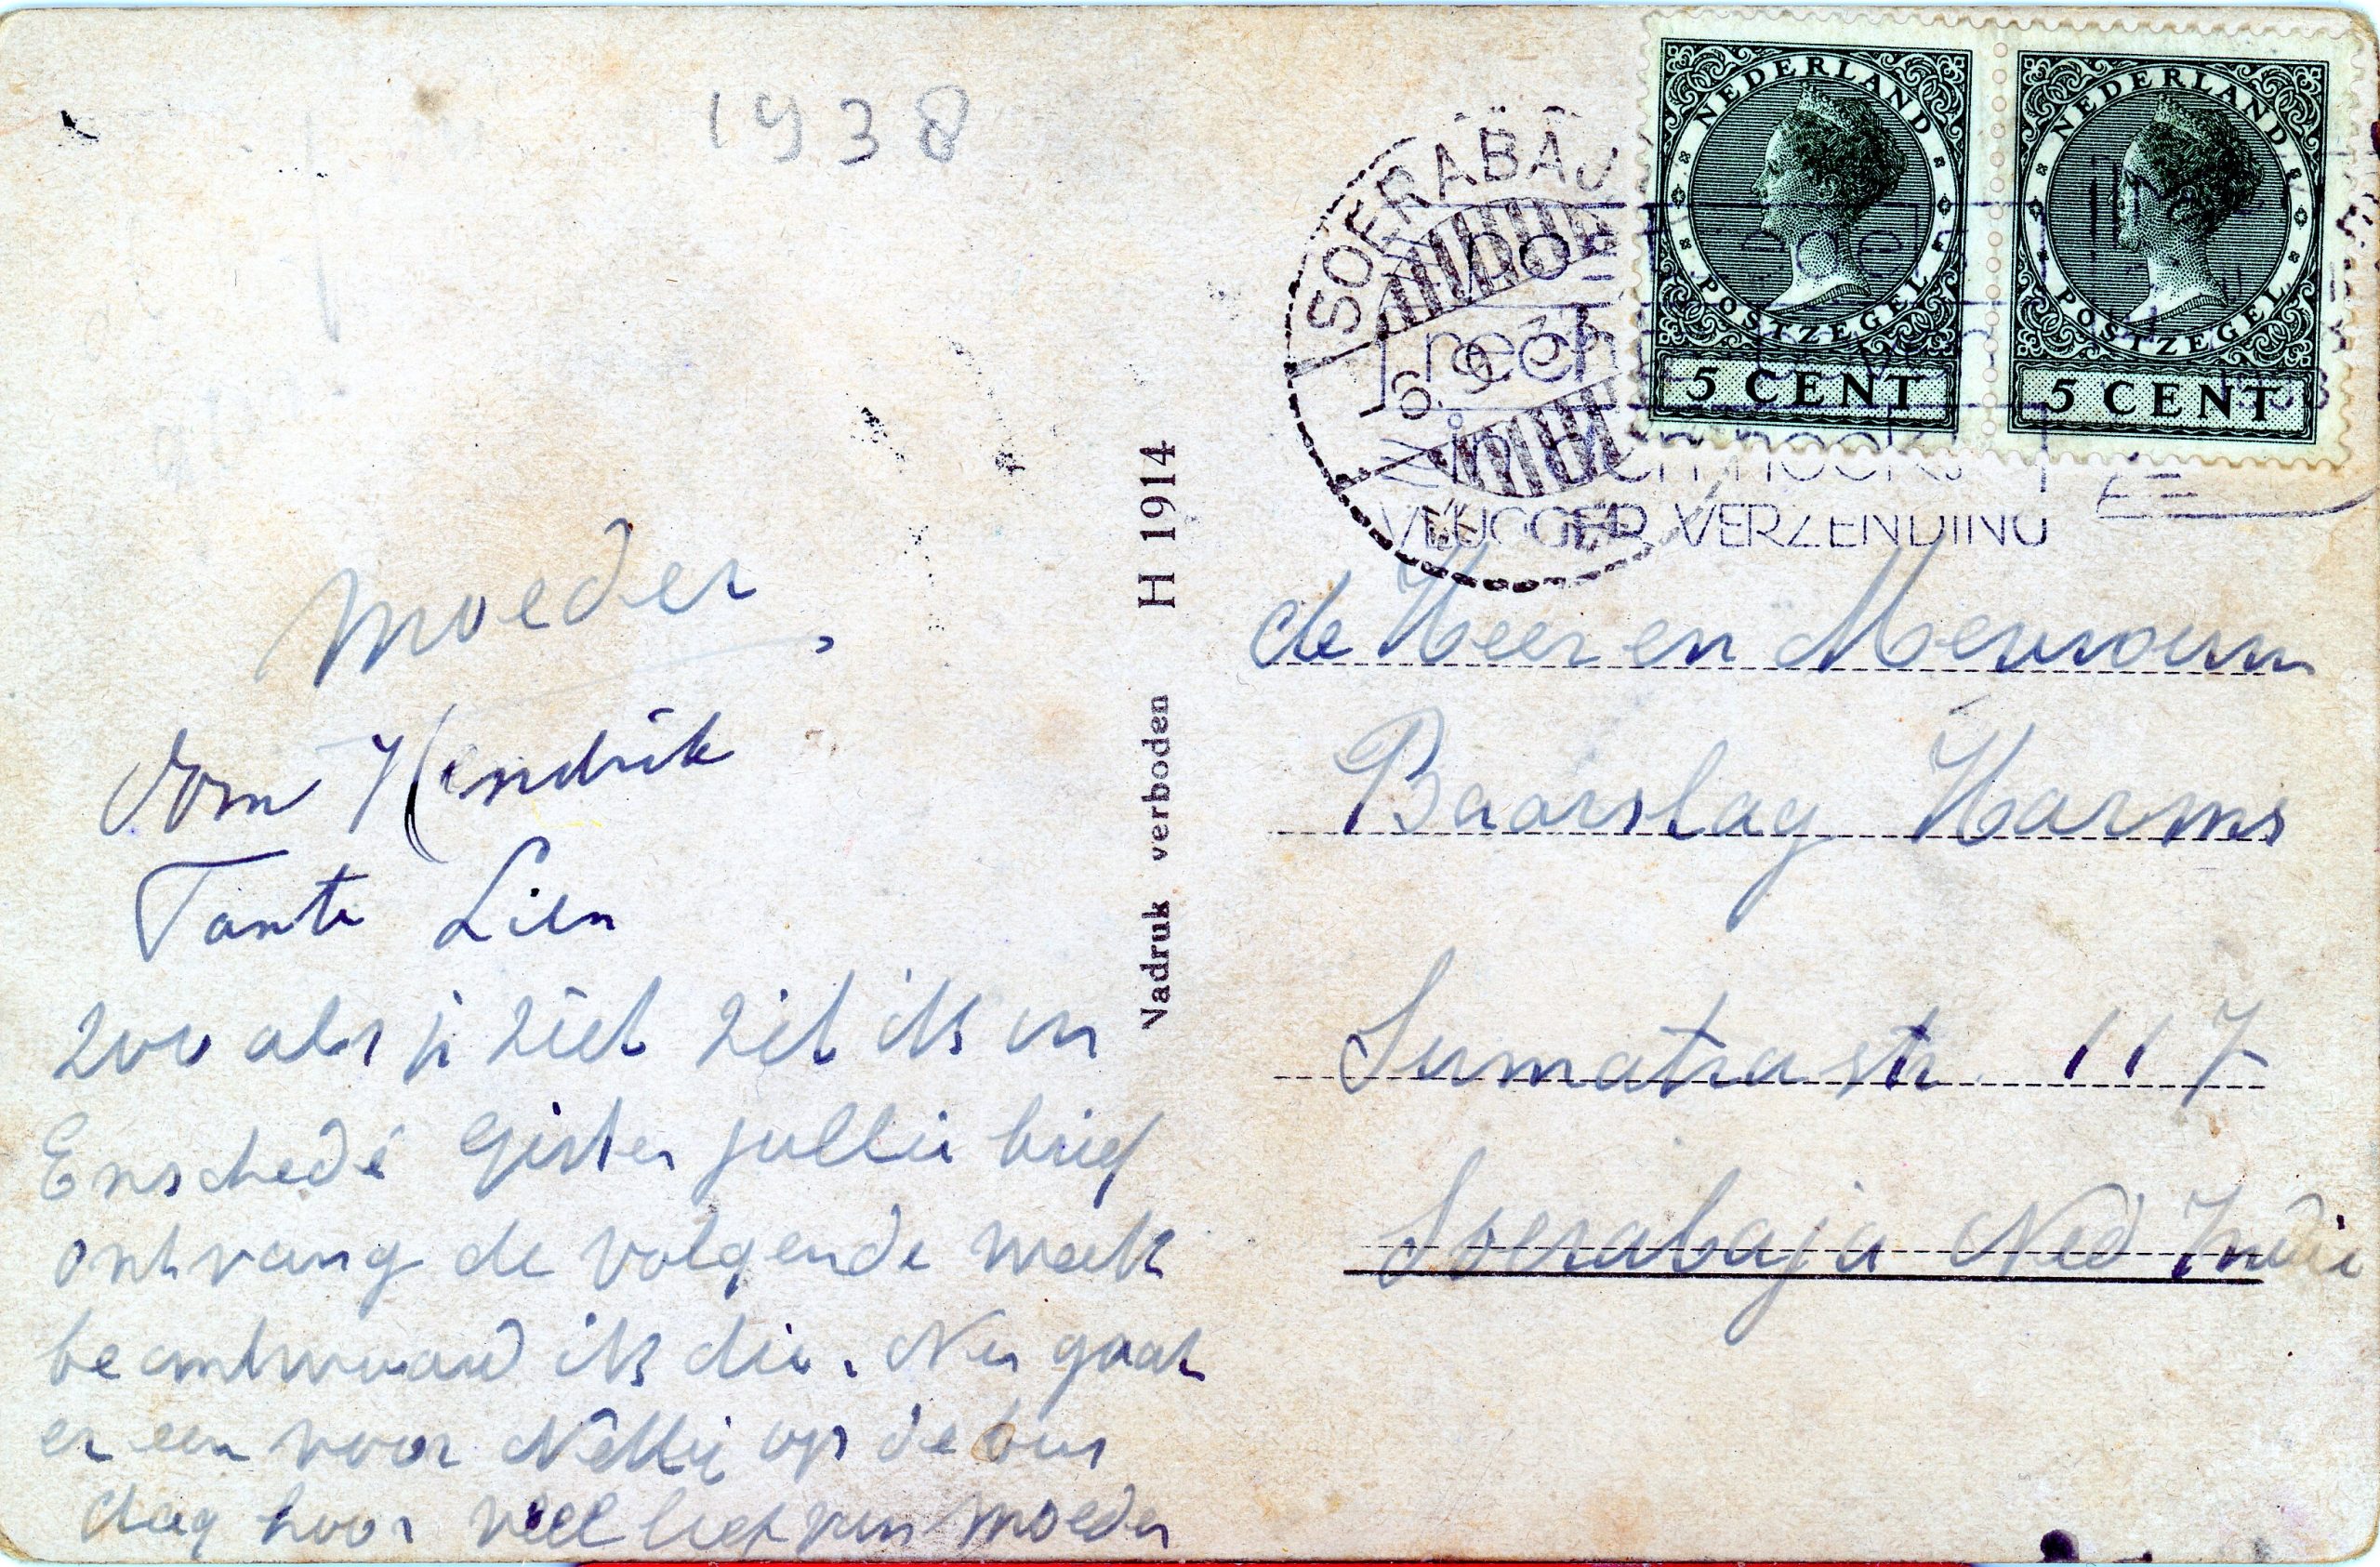 1938
Moeder,
Oom Hendrik
Tante Lien
Zoo als je ziet zit ik in
Enschedé Gister jullie brief
ontvang de volgende week
beantwoord ik die. Nu gaat
er een voor Nellij op de bus
dag hoor veel liefs van moeder
Vadruk verboden H 1914
SOERABAJ
6.9.38
in
VLUGGER VERZENDING
NEDERLAND
POSTZEGEL
5 CENT
NEDERLAND
POSTZEGEL
5 CENT
de Heer en Mevrouw
Baarslag Harms
Sumatrastr. 117
Soerabaja Ned Indie